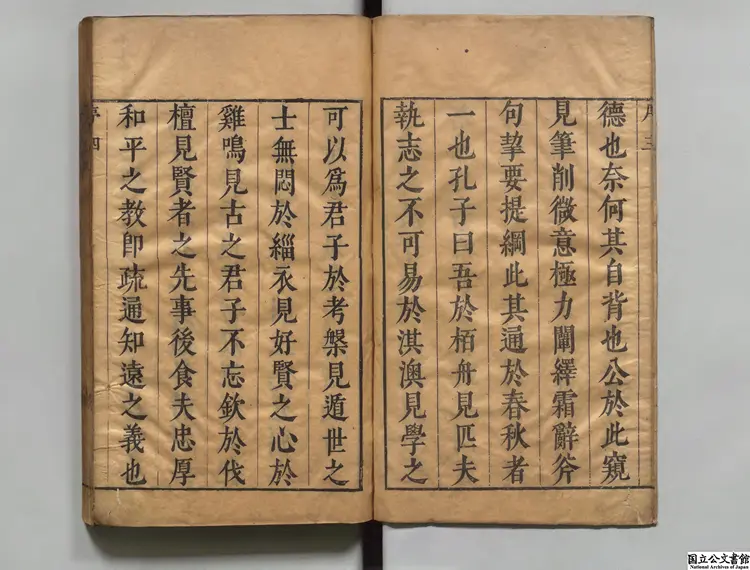 序三
德也奈何其自背也公於此窺
見筆削微意極力闡繹霜辭斧
句挈要提綱此其通於春秋者
一也孔子曰吾於栢舟見匹夫
執志之不可易於淇澳見學之
可以爲君子於考槃見遁世之
士無悶於緇衣見好賢之心於
雞鳴見古之君子不忘欽於伐
檀見賢者之先事後食夫忠厚
和平之教卽疏通知遠之義也
序四
国立公文書館
National Archives of Japan